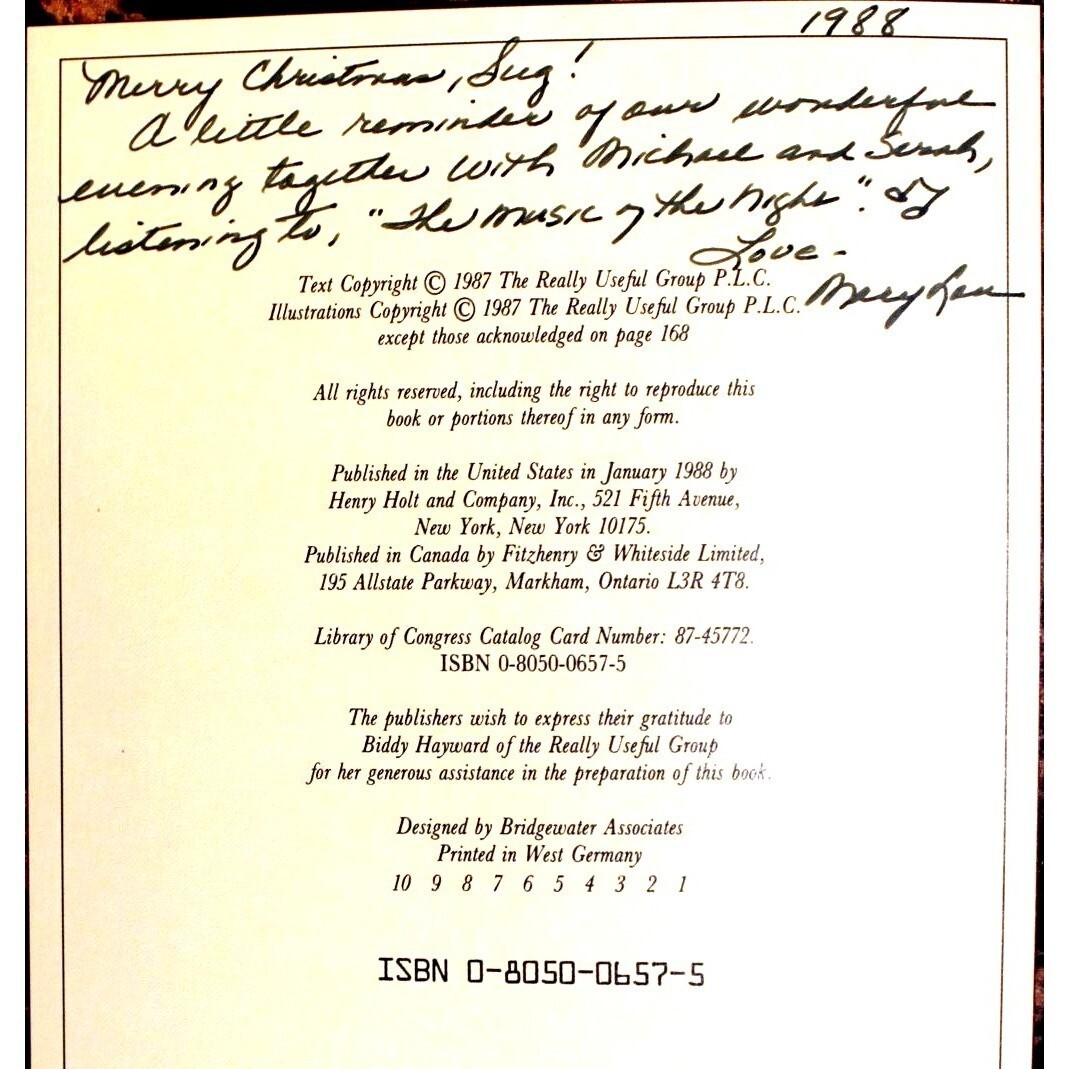 1988
Merry Christmas, Sug!
A little reminder of our wonderful
evening together with Michael and Sarah,
listening to, "The Music of the Night".
Love -
Text Copyright © 1987 The Really Useful Group P.L.C.
Mary Lou
Illustrations Copyright © 1987 The Really Useful Group P.L.C.
except those acknowledged on page 168
All rights reserved, including the right to reproduce this
book or portions thereof in any form.
Published in the United States in January 1988 by
Henry Holt and Company, Inc., 521 Fifth Avenue,
New York, New York 10175.
Published in Canada by Fitzhenry & Whiteside Limited,
195 Allstate Parkway, Markham, Ontario L3R 4T8.
Library of Congress Catalog Card Number: 87-45772.
ISBN 0-8050-0657-5
The publishers wish to express their gratitude to
Biddy Hayward of the Really Useful Group
for her generous assistance in the preparation of this book.
Designed by Bridgewater Associates
Printed in West Germany
10 9 8 7 6 5 4 3 2 1
ISBN 0-8050-0657-5